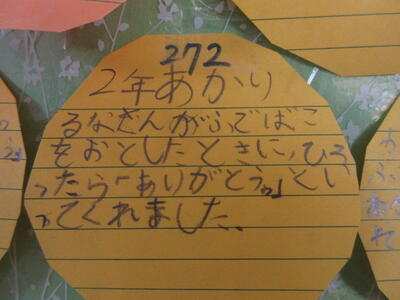 272
2年あかり
るなさんがふでばこ
をおとしたときに、ひろ
ったら「ありがとう。」とい
ってくれました。